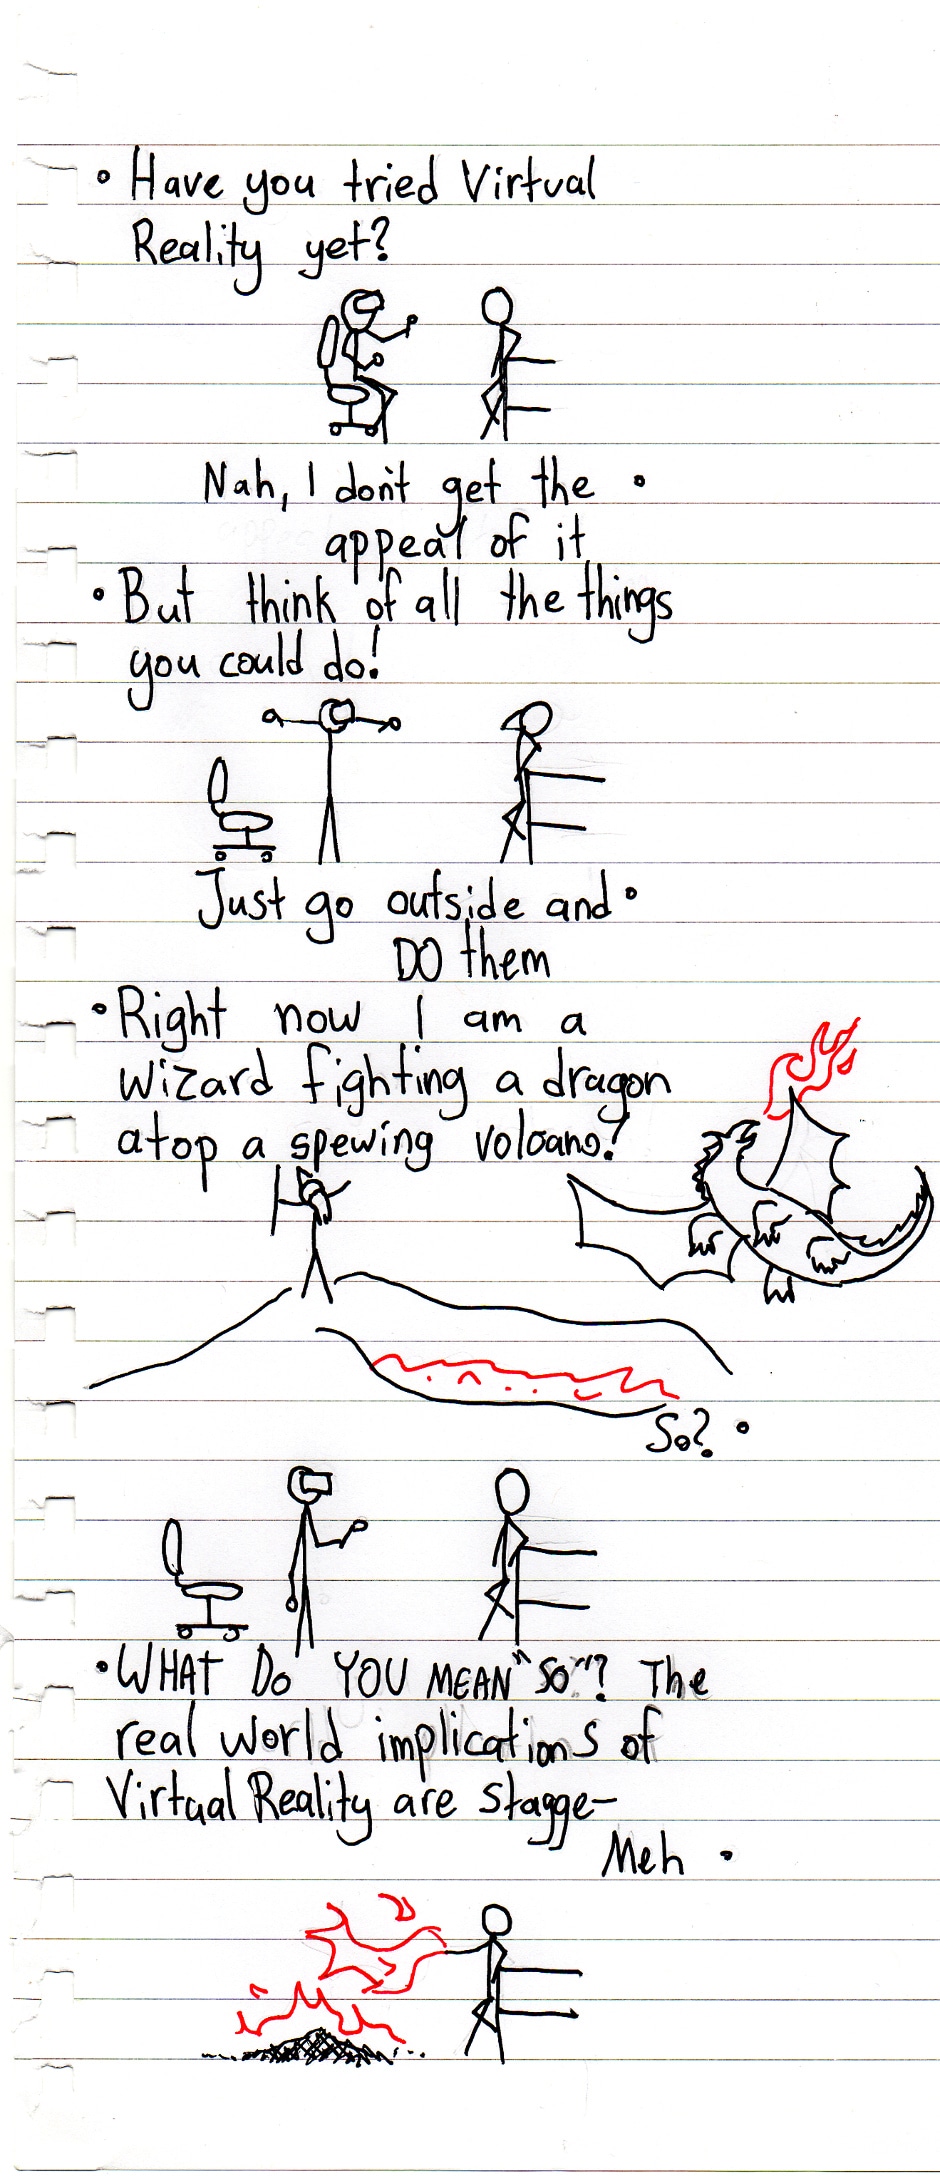 • Have you tried Virtual
Reality yet?
Nah, I don't get the •
appeal of it
• But think of all the things
you could do!
Just go outside and •
DO them
• Right now I am a
wizard fighting a dragon
atop a spewing volcano!
So? •
• WHAT DO YOU MEAN "SO"? The
real world implications of
Virtual Reality are stagge-
Meh •